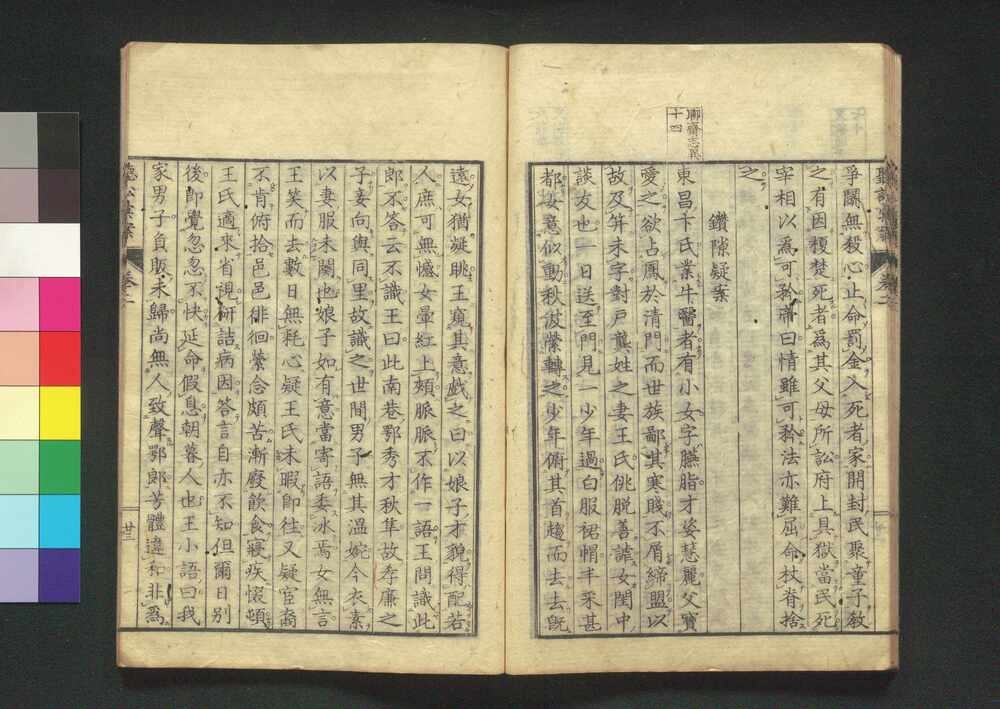 爭鬭無殺心止命罰金入死者家開封民聚童子教
之有因榎楚死者爲其父母所訟府上具獄當民死
宰相以爲可矜帝曰情雖可矜法亦難屈命杖脊捨
之
鑽隙疑案
聊齋志異
十四
東昌卞氏業牛醫者有小女字臙脂才姿慧麗父寶
愛之欲占鳳於清門而世族鄙其寒賤不屑締盟以
故及笄未字對戸龔姓之妻王氏佻脱善謔女閨中
談友也一日送至門見一少年過白服裙帽丰采甚
都女意似動秋波縈轉之少年俯其首趨而去去既
遠女猶凝眺王窺其意戲之曰以娘子才貌得配若
人庶可無憾女暈紅上頰脈脈不作一語王問識此
郎不答云不識王曰此南巷鄂秀才秋隼故孝廉之
子妾向與同里故識之世間男子無其温婉今衣素
以妻服未闋也娘子如有意當寄語委冰焉女無言
王笑而去數日無耗心疑王氏未暇即往又疑宦裔
不肯俯拾邑邑徘徊縈念頗苦漸廢飲食寢疾惙頓
王氏適來省視研詰病因答言自亦不知但爾日別
後即覺忽忽不快延命假息朝暮人也王小語曰我
家男子負販未歸尚無人致聲鄂郎芳體違和非爲
卷二
廿三